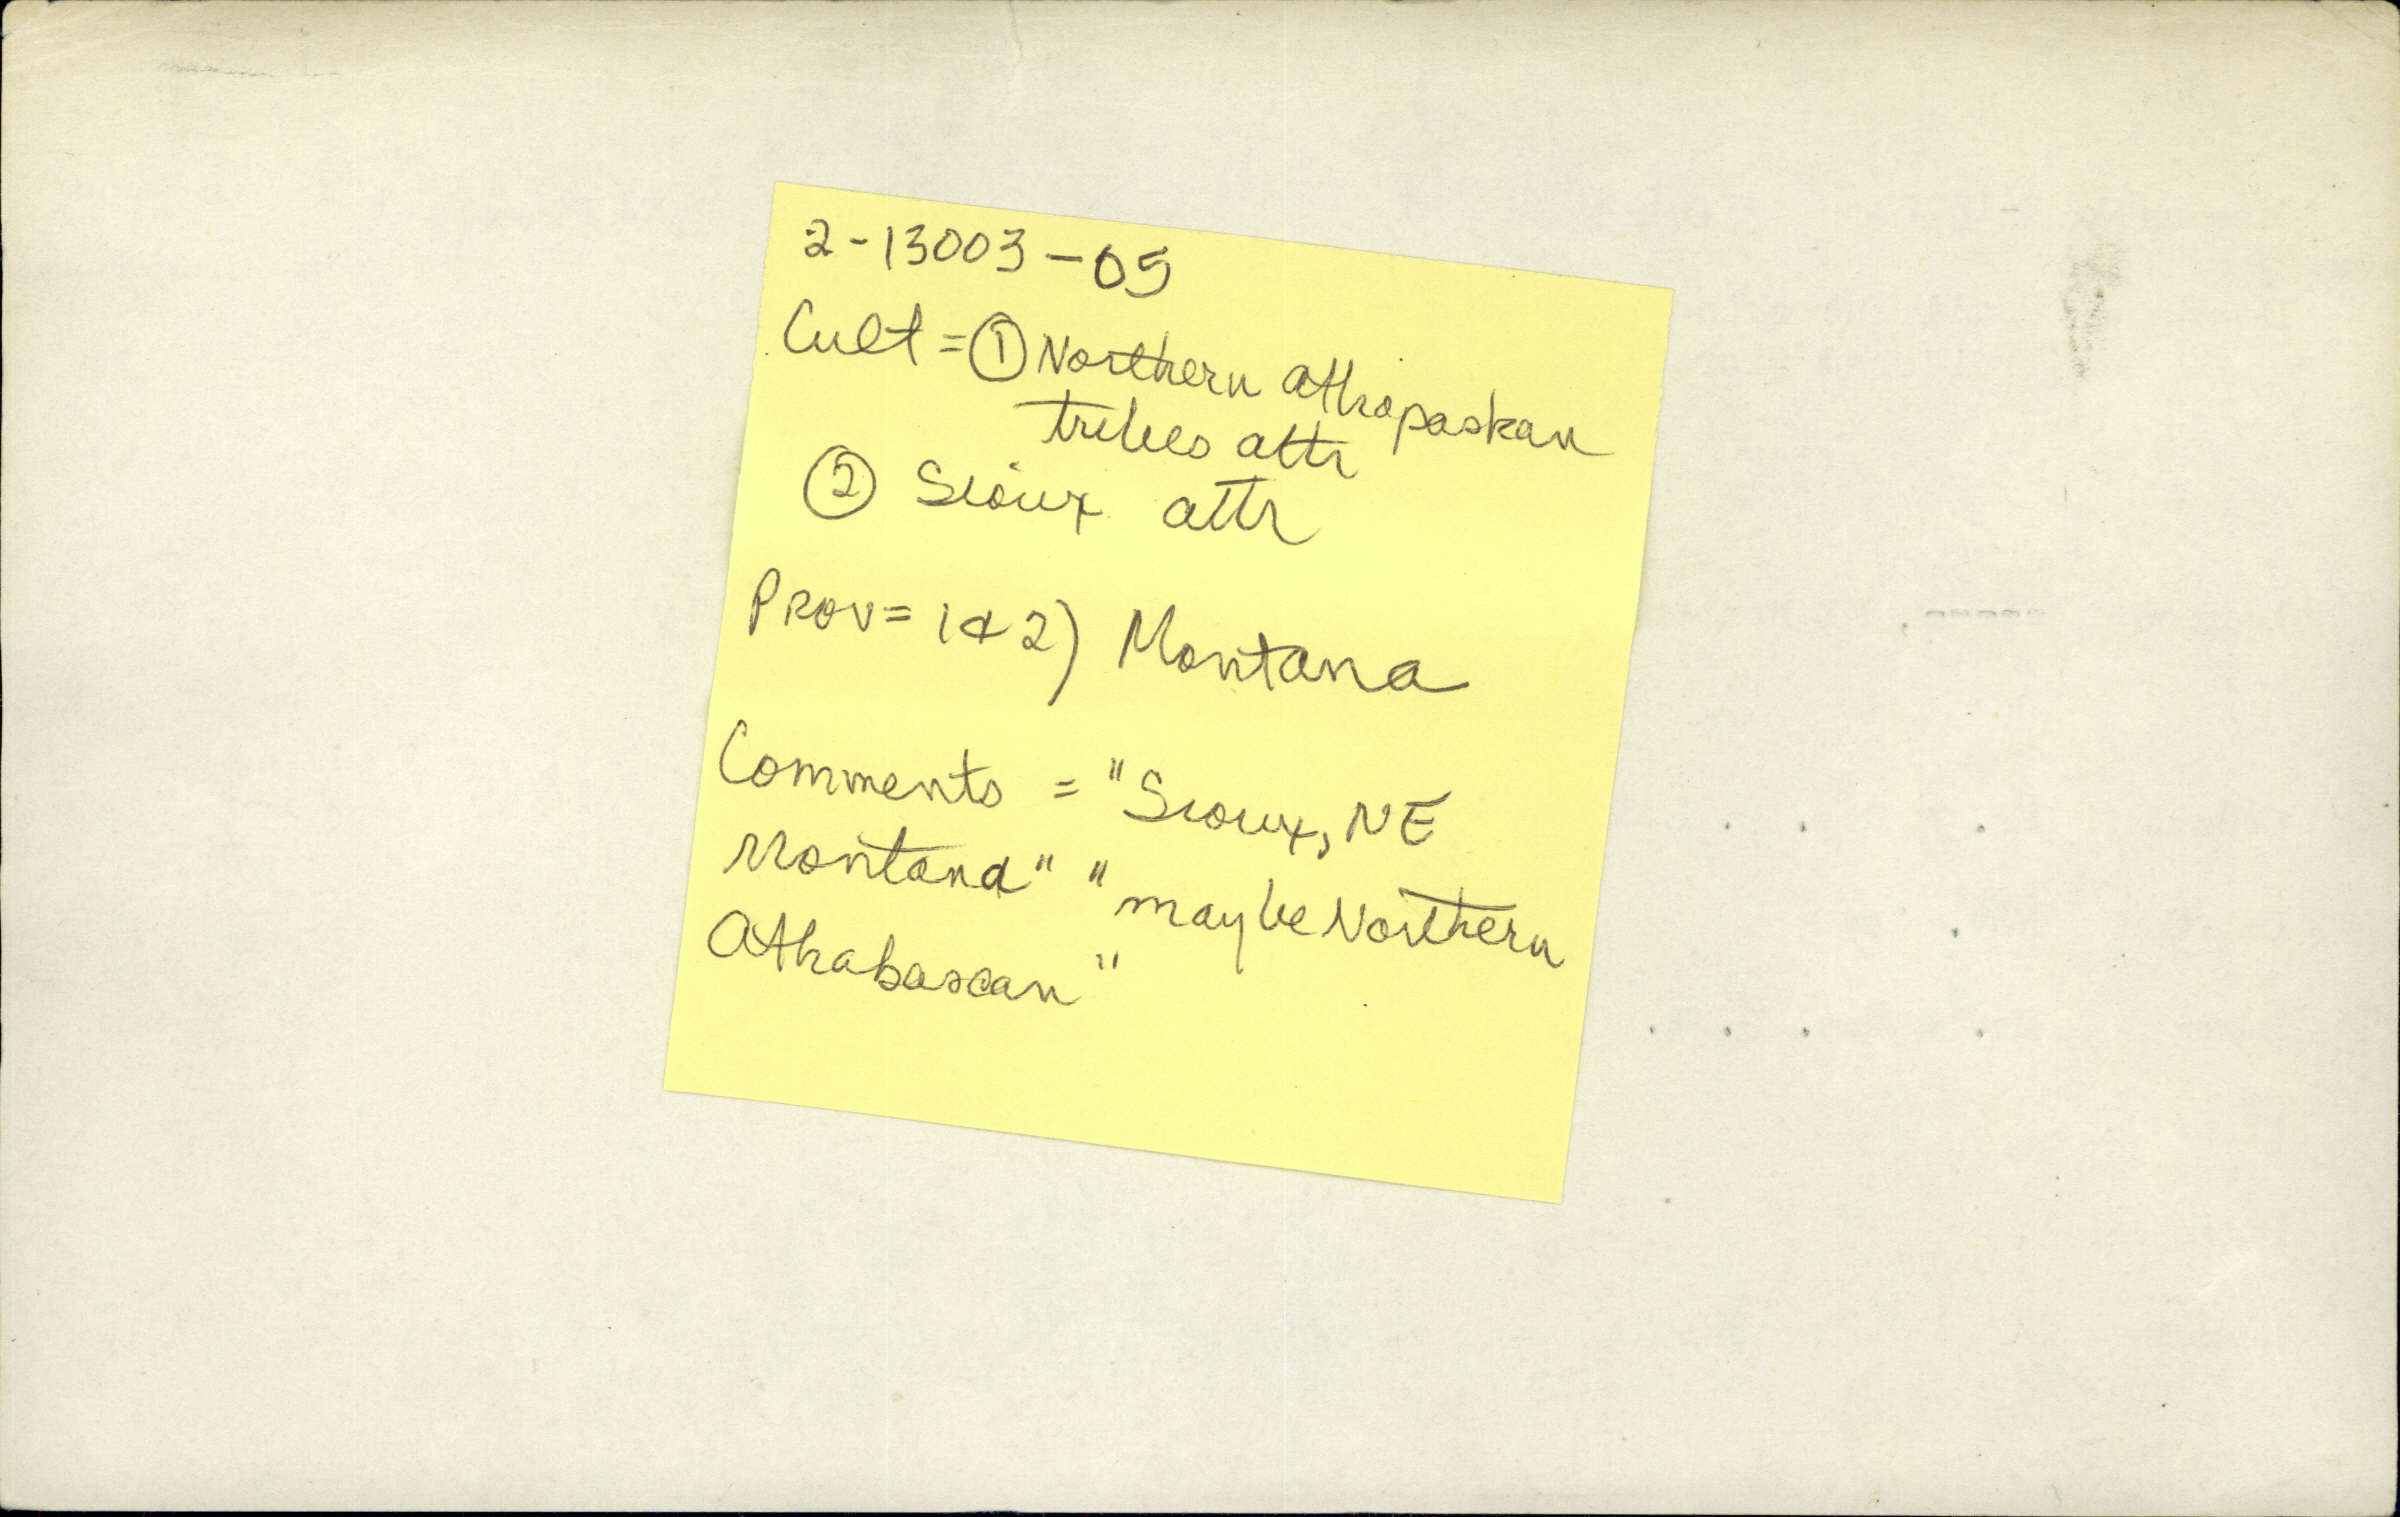 2-13003-05
Cult = ① Northern Athapaskan
tribes attr
② Sioux attr
Prov = 1 & 2) Montana
Comments = "Sioux, NE
Montana" "maybe Northern
Athabascan"